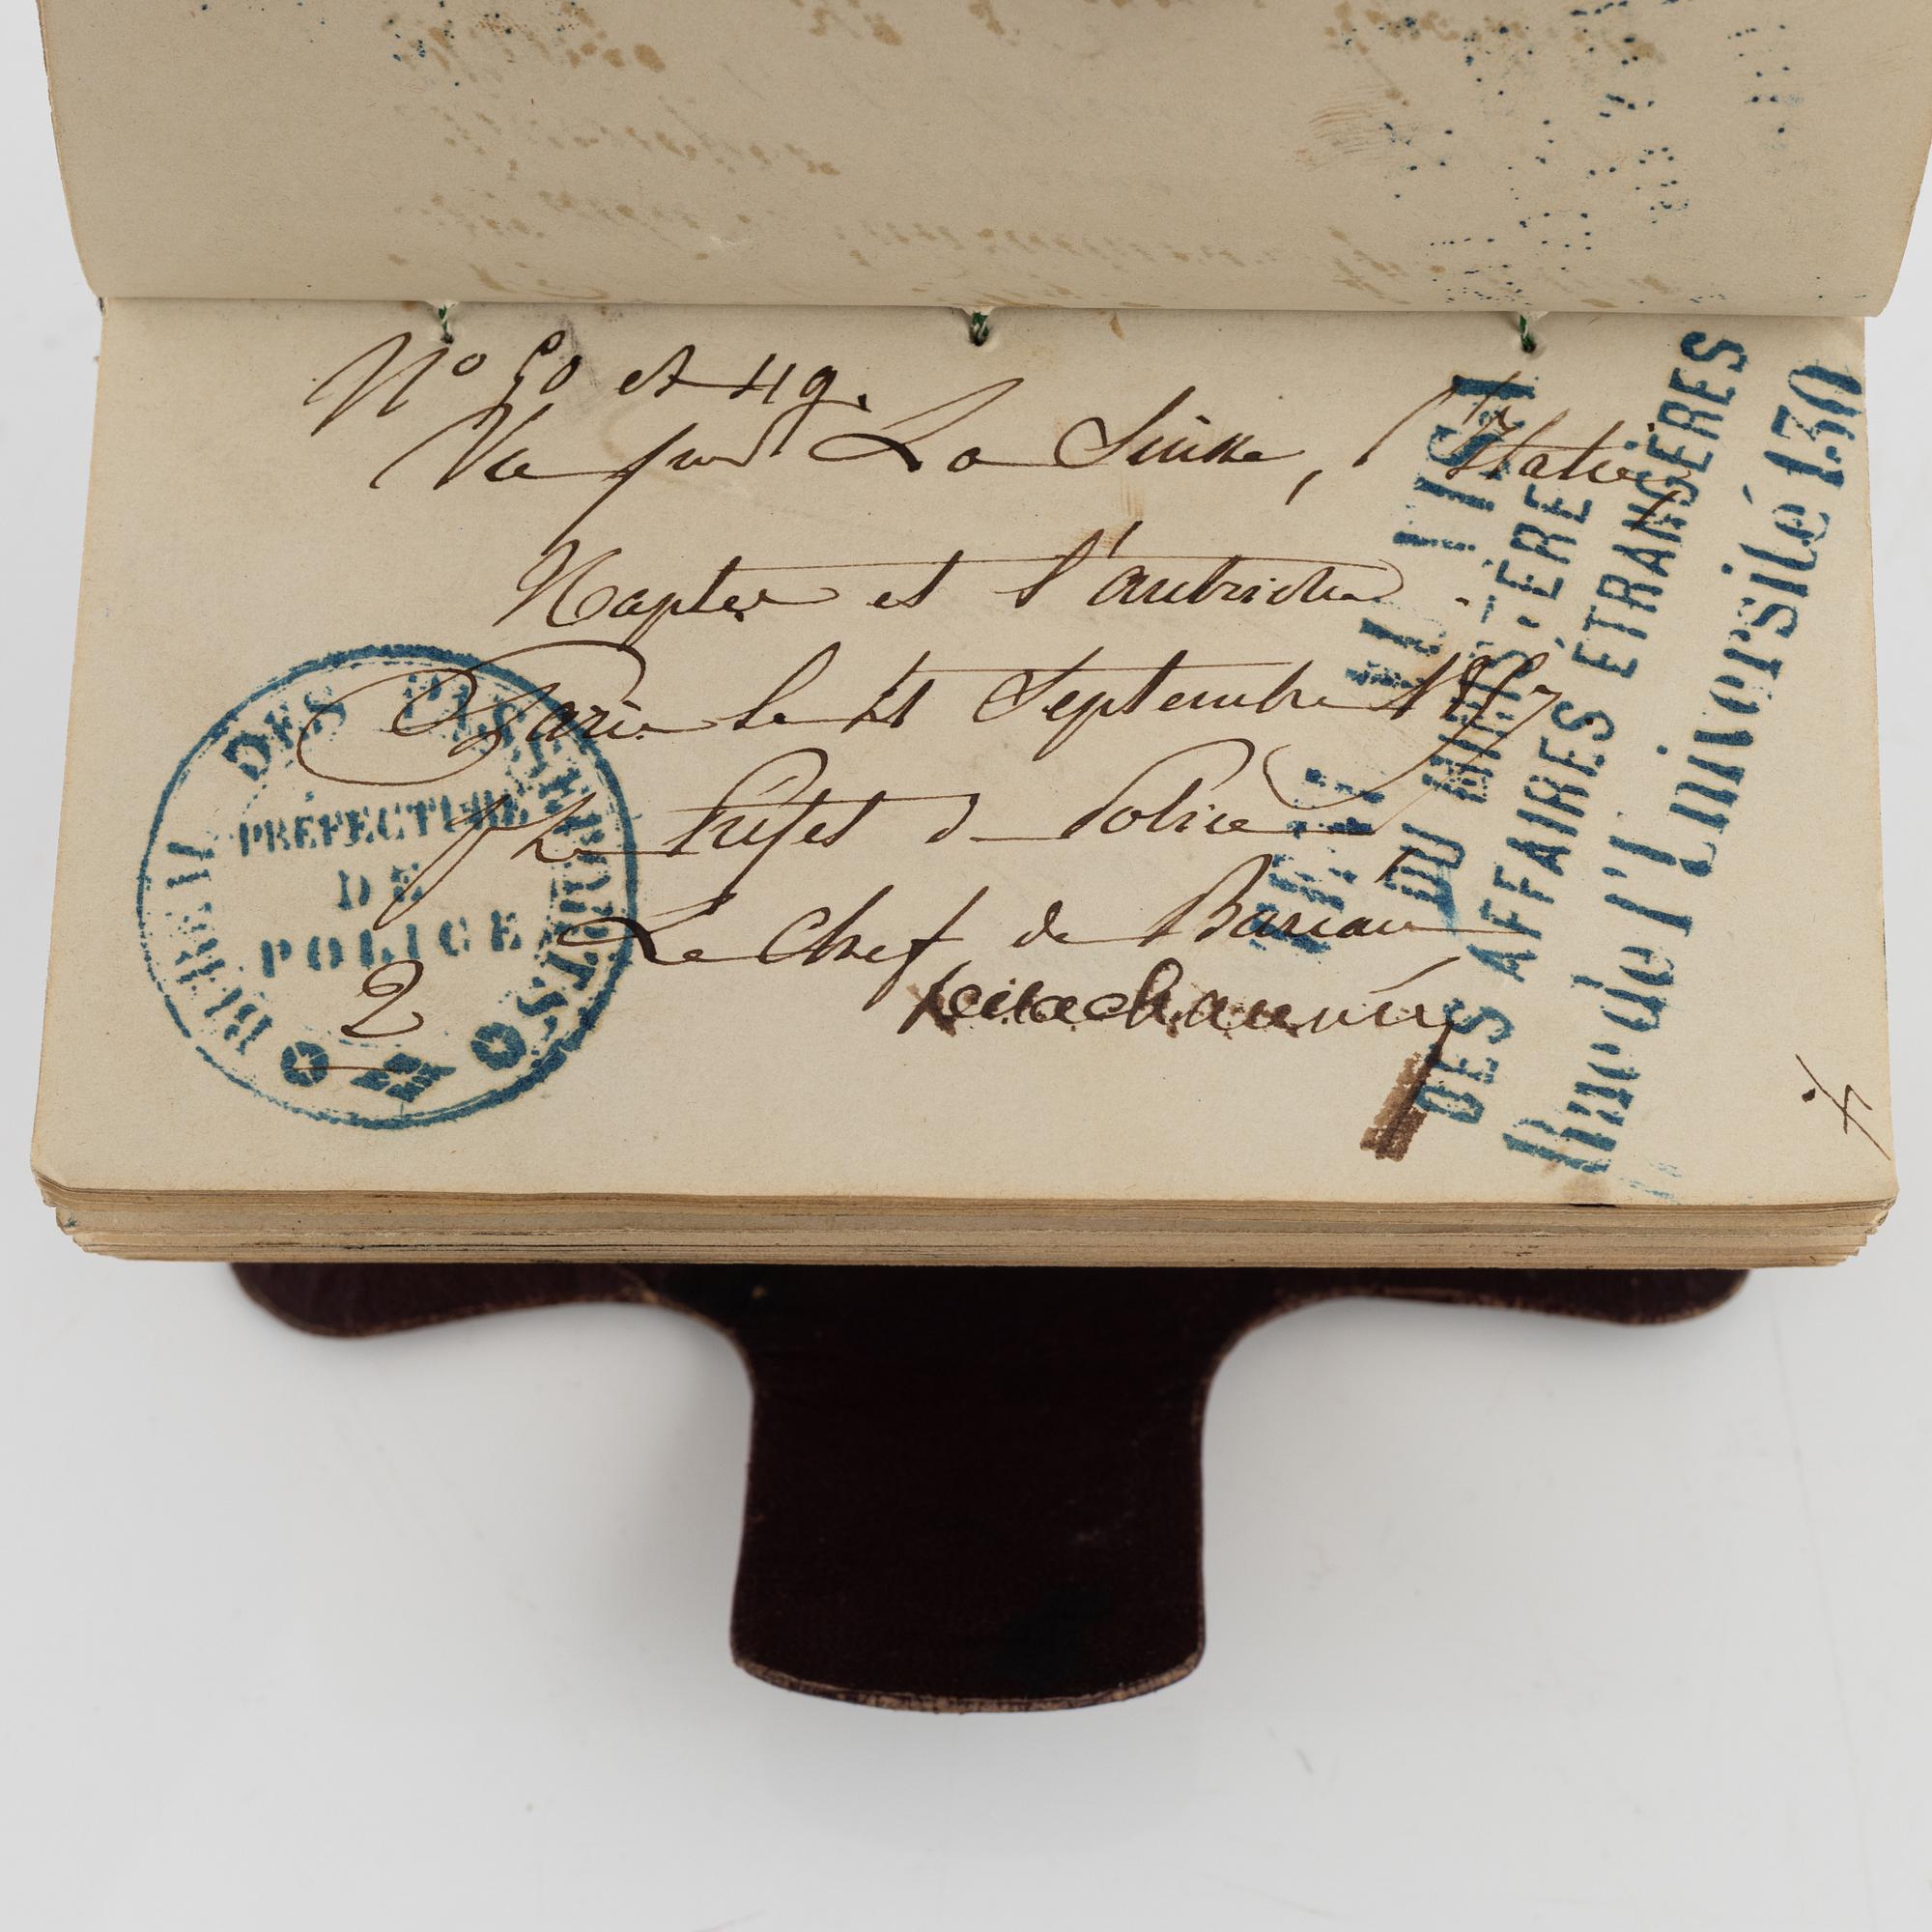 N° 50 et 49.
Vu pour La Suisse, l'Italie,
Naples et l'autriche.
Paris le 11 Septembre 1857
Le Préfet de Police
Le Chef de Bureau
BUREAU DES PASSEPORTS
PRÉFECTURE
DE
POLICE
2
DU MINISTÈRE
DES AFFAIRES ÉTRANGÈRES
Rue de l'Université 130